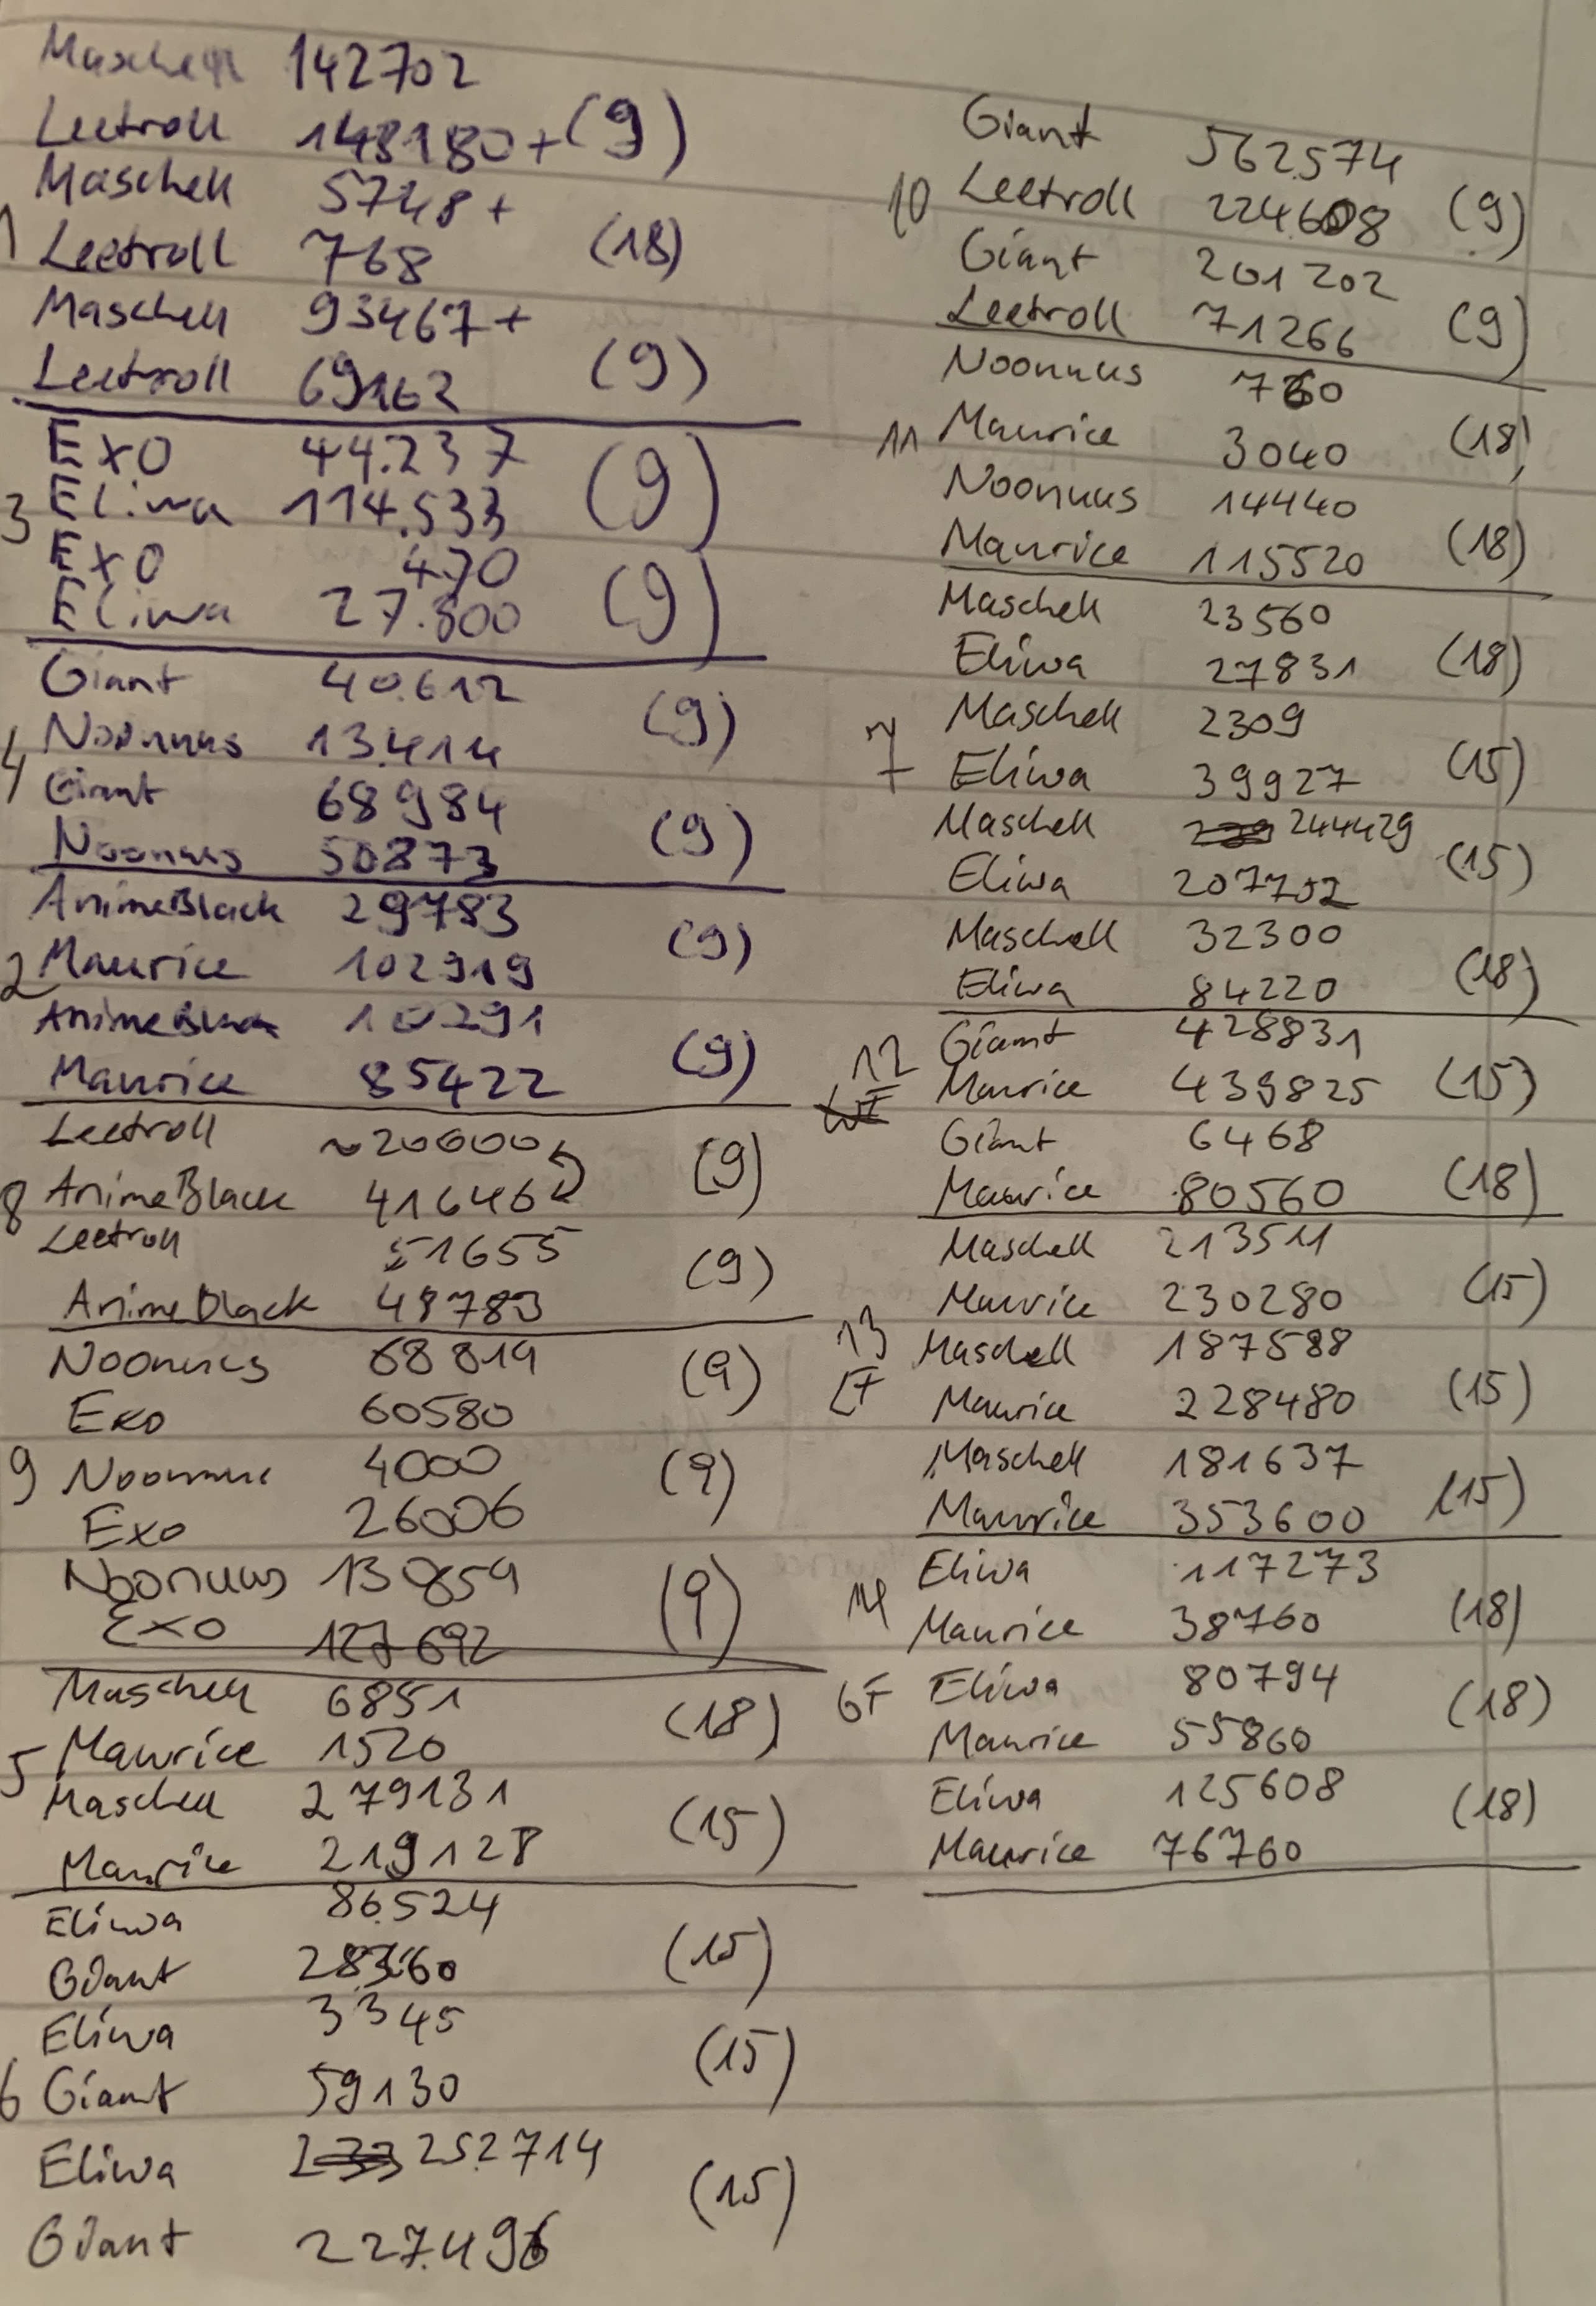 Maschell 142702
Leetroll 148180+ (9)
Maschell 5748+
1 Leetroll 768 (18)
Maschell 93467+
Leetroll 69162 (9)
Exo 44.237
3 Eliwa 114.533 (9)
Exo 470
Eliwa 27.800 (9)
Giant 40.612
4 Noonuus 13.414 (9)
Giant 68984
Noonuus 50873 (9)
AnimeBlack 29783
2 Maurice 102919 (9)
AnimeBlack 10291
Maurice 85422 (9)
Leetroll ~20000
8 AnimeBlack 41646 (9)
Leetroll 51655
AnimeBlack 48783 (9)
Noonuus 68819 (9)
Exo 60580
9 Noonuus 4000 (9)
Exo 26006
Noonuus 130859 (9)
Exo 127692
Maschell 6851 (18)
5 Maurice 1520
Maschell 279131 (15)
Maurice 219128
Eliwa 86.524
Giant 28360 (15)
Eliwa 3345
6 Giant 59130 (15)
Eliwa 252.714
Giant 227.496 (15)
Giant 562574
10 Leetroll 224608 (9)
Giant 201202
Leetroll 71266 (9)
Noonuus 760
11 Maurice 3040 (18)
Noonuus 14440
Maurice 115520 (18)
Maschell 23560
Eliwa 27831 (18)
Maschell 2309
7 Eliwa 39927 (15)
Maschell 244429
Eliwa 207702 (15)
Maschell 32300
Eliwa 84220 (18)
12 Giant 428831
Maurice 439825 (15)
Giant 6468
Maurice 80560 (18)
Maschell 213511
Maurice 230280 (15)
13 Maschell 187588
LF Maurice 228480 (15)
Maschell 181637
Maurice 353600 (15)
Eliwa 117273
14 Maurice 38760 (18)
GF Eliwa 80794
Maurice 55860 (18)
Eliwa 125608
Maurice 76760 (18)